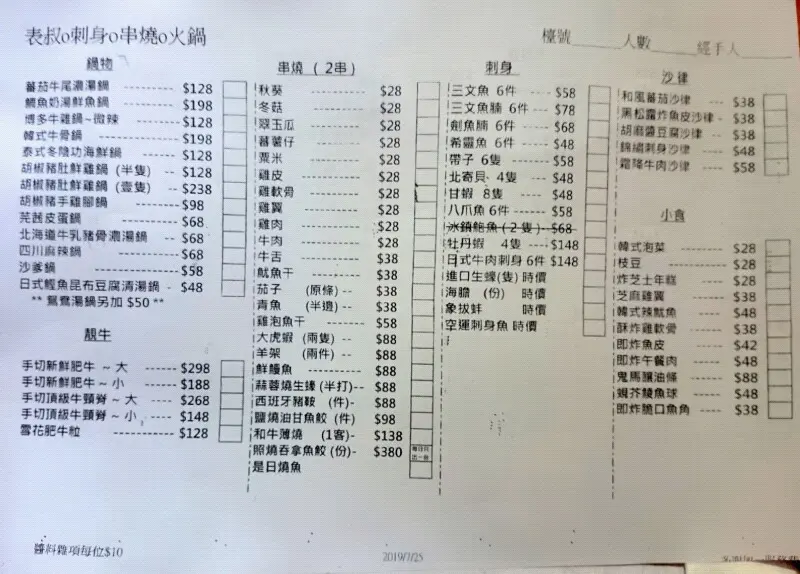 表叔o刺身o串燒o火鍋
檯號______人數______經手人______
鍋物
蕃茄牛尾濃湯鍋 ---------- $128
鱲魚奶湯鮮魚鍋 ---------- $198
博多牛雞鍋~微辣 --------- $128
韓式牛骨鍋 ---------- $198
泰式冬陰功海鮮鍋 -------- $128
胡椒豬肚鮮雞鍋 (半隻) -- $128
胡椒豬肚鮮雞鍋 (壹隻) -- $238
胡椒豬手雞腳鍋 ------- $98
芫茜皮蛋鍋 ---------- $68
北海道牛乳豬骨濃湯鍋 -- $68
四川麻辣鍋 ---------- $68
沙爹鍋 ------------- $58
日式鰹魚昆布豆腐清湯鍋 - $48
** 鴛鴦湯鍋另加 $50 **
靚牛
手切新鮮肥牛 ~ 大 ------ $298
手切新鮮肥牛 ~ 小 ------ $188
手切頂級牛頸脊 ~ 大 ---- $268
手切頂級牛頸脊 ~ 小 ---- $148
雪花肥牛粒 ------------ $128
串燒 ( 2串)
秋葵 ---------- $28
冬菇 ---------- $28
翠玉瓜 ---------- $28
蕃薯仔 ---------- $28
粟米 ---------- $28
雞皮 ---------- $28
雞軟骨 ---------- $28
雞翼 ---------- $28
雞肉 ---------- $28
牛肉 ---------- $28
牛舌 ---------- $38
魷魚干 ---------- $38
茄子 (原條) -- $38
青魚 (半邊) -- $38
雞泡魚干 -------- $58
大虎蝦 (兩隻) -- $88
羊架 (兩件) -- $88
鮮鰻魚 ---------- $88
蒜蓉燒生蠔 (半打)-- $88
西班牙豬鞍 (件)- $88
鹽燒油甘魚鮫 (件) $98
和牛薄燒 (1客)- $138
照燒吞拿魚鮫 (份)- $380
是日燒魚
刺身
三文魚 6件 ----- $58
三文魚腩 6件 ---- $78
劍魚腩 6件 ----- $68
希靈魚 6件 ----- $48
帶子 6隻 ------ $58
北寄貝 4隻 ----- $48
甘蝦 8隻 ----- $48
八爪魚 6件 ----- $58
冰鎮鮑魚 (2隻) --$68
牡丹蝦 4隻 -- $148
日式牛肉刺身 6件 $148
進口生蠔(隻) 時價
海膽 (份) 時價
象拔蚌 時價
空運刺身魚 時價
沙律
和風蕃茄沙律 --- $38
黑松露炸魚皮沙律 - $38
胡麻醬豆腐沙律 -- $38
錦繡刺身沙律 --- $48
霜降牛肉沙律 --- $58
小食
韓式泡菜 ----- $28
枝豆 ------- $28
炸芝士年糕 ---- $28
芝麻雞翼 ----- $38
韓式辣魷魚 ---- $48
酥炸雞軟骨 ---- $38
即炸魚皮 ----- $42
即炸午餐肉 ---- $48
鬼馬釀油條 ---- $88
蜆芥鯪魚球 ---- $48
即炸脆口魚角 --- $38
醬料雜項每位$10
2019/7/25